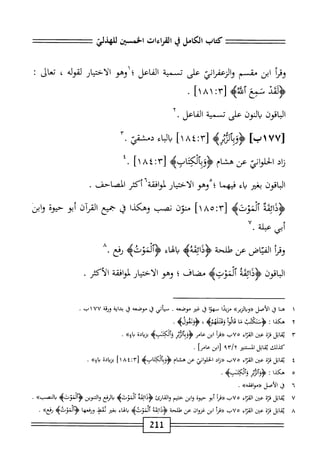 كتاب الكامل في القراءات الخمسين للهذليّ
وقرأ ابن مقسم والزعفرانيّ على تسمية الفاعل ؛ ١وهو الاختيار لقوله ، تعالى :
﴿لَقَدْ سَمِعَ اللَّهُ﴾ [١٨١:٣] .
الباقون بالنون على تسمية الفاعل .٢
[١٧٧ب] ﴿وَبِالزُّبُرِ﴾ [١٨٤:٣] بالباء دمشقيّ .٣
زاد الحلوانيّ عن هشام ﴿وَبِالْكِتَابِ﴾ [١٨٤:٣] .٤
الباقون بغير باء فيهما ؛ ٥وهو الاختيار لموافقة٦ أكثر المصاحف .
﴿ذَائِقَةٌ الْمَوْتَ﴾ [١٨٥:٣] منوّن نصب وهكذا في جميع القرآن أبو حيوة وابن
أبي عبلة .٧
وقرأ القيّاض عن طلحة ﴿ذَائِقُهُ﴾ بالهاء ﴿الْمَوْتُ﴾ رفع .٨
الباقون ﴿ذَائِقَةُ الْمَوْتِ﴾ مضاف ؛ وهو الاختيار لموافقة الأكثر .
١ هنا في الأصل «وبالزبر» مزيدًا سهوًا في غير موضعه . سيأتي في موضعه في بداية ورقة ١٧٧ب .
٢ هكذا : ﴿سَنَكْتُبُ مَا قَالُوا وَقَتْلَهُمُ﴾ ، ﴿وَنَقُولُ﴾ .
٣ يُقابَل قرّة عين القرّاء ٧٥ب «قرأ ابن عامر ﴿وَبِالزُّبُرِ وَالْكِتَابِ﴾ بزيادة باء» .
كذلك يُقابَل المستنير ٩٣/٢ [ابن عامر] .
٤ يُقابَل قرّة عين القرّاء ٧٥ب «زاد الحلوانيّ عن هشام ﴿وَبِالْكِتَابِ﴾ [١٨٤:٣] بزيادة باء» .
٥ هكذا : ﴿وَالزُّبُرِ وَالْكِتَابِ﴾ .
٦ في الأصل «موافقة» .
٧ يُقابَل قرّة عين القرّاء ٧٥ب «قرأ أبو حيوة وابن خثيم والقارئ ﴿ذَائِقَةٌ الْمَوْتَ﴾ بالرفع والتنوين ﴿الْمَوْتَ﴾ بالنصب» .
٨ يُقابَل قرّة عين القرّاء ٧٥ب «قرأ ابن غزوان عن طلحة ﴿ذَائِقُهُ الْمَوْتُ﴾ بالهاء بغير نُقَطٍ ورفعها ﴿الْمَوْتُ﴾ رفع» .
211